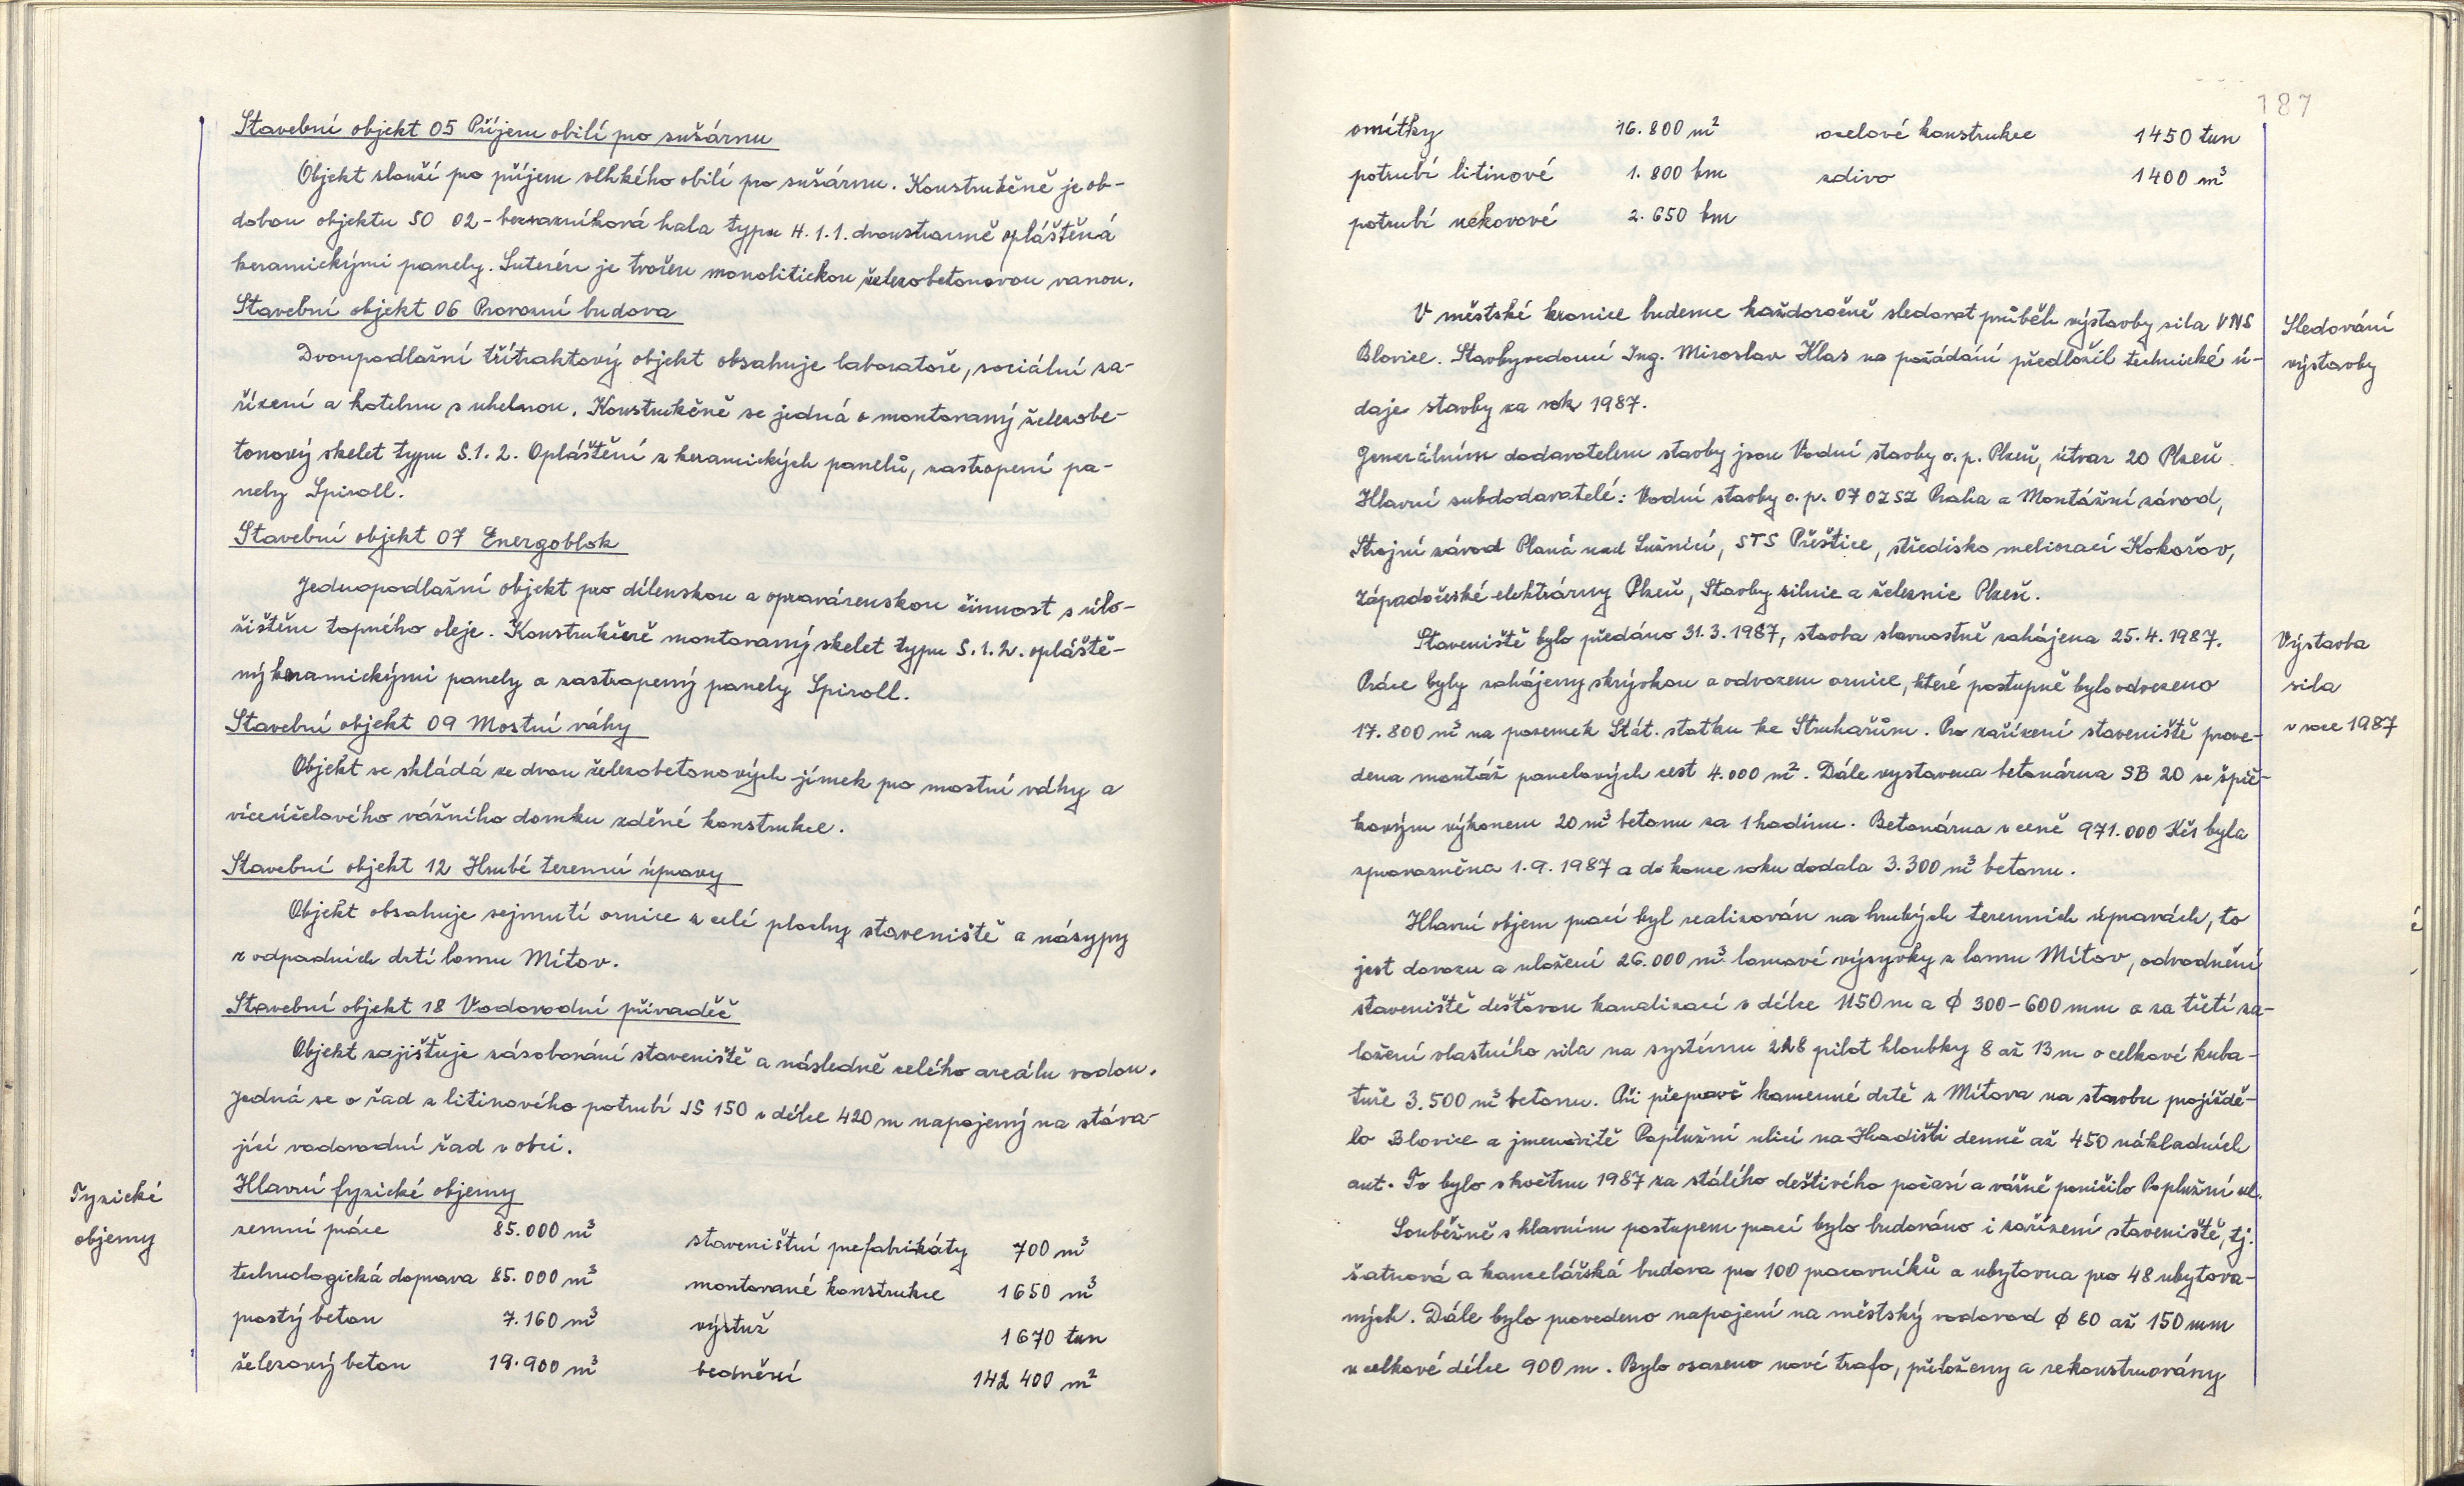 Stavební objekt 05 Příjem obilí pro sušárnu
Objekt slouží pro příjem vlhkého obilí pro sušárnu. Konstrukčně je ob-
dobou objektu SO 02 - bezvazníková hala typu H.1.1. dvoustranně opláštěná
keramickými panely. Suterén je tvořen monolitickou železobetonovou vanou.
Stavební objekt 06 Provozní budova
Dvoupodlažní třítraktový objekt obsahuje laboratoře, sociální za-
řízení a kotelnu s uhelnou. Konstrukčně se jedná o montovaný železobe-
tonový skelet typu S.1.2. Opláštění z keramických panelů, zastropení pa-
nely Spiroll.
Stavební objekt 07 Energoblok
Jednopodlažní objekt pro dílenskou a opravárenskou činnost s úlo-
žištěm topného oleje. Konstrukčně montovaný skelet typu S.1.2. opláště-
ný keramickými panely a zastropený panely Spiroll.
Stavební objekt 09 Mostní váhy
Objekt se skládá ze dvou železobetonových jímek pro mostní váhy a
víceúčelového vážního domku zděné konstrukce.
Stavební objekt 12 Hrubé terenní úpravy
Objekt obsahuje sejmutí ornice z celé plochy staveniště a násypy
z odpadních drtí lomu Mítov.
Stavební objekt 18 Vodovodní přivaděč
Objekt zajišťuje zásobování staveniště a následně celého areálu vodou.
Jedná se o řad z litinového potrubí JS 150 v délce 420 m napojený na stáva-
jící vodovodní řad v obci.
Fyzické
objemy
Hlavní fyzické objemy
zemní práce 85.000 m³ staveništní prefabrikáty 700 m³
technologická doprava 85.000 m³ montované konstrukce 1650 m³
prostý beton 7.160 m³ výstuž 1670 tun
železový beton 19.900 m³ bednění 142 400 m²
187
omítky 16.800 m² ocelové konstrukce 1450 tun
potrubí litinové 1.800 bm zdivo 1400 m³
potrubí nekovové 2.650 bm
V městské kronice budeme každoročně sledovat průběh výstavby sila VNS
Blovice. Stavbyvedoucí Ing. Miroslav Klas na požádání předložil technické ú-
daje stavby za rok 1987.
Sledování
výstavby
Generálním dodavatelem stavby jsou Vodní stavby o.p. Plzeň, útvar 20 Plzeň.
Hlavní subdodavatelé: Vodní stavby o.p. 07 OZSZ Praha a Montážní závod,
Strojní závod Planá nad Lužnicí, STS Přeštice, středisko meliorací Kokořov,
Západočeské elektrárny Plzeň, Stavby silnic a železnic Plzeň.
Staveniště bylo předáno 31.3.1987, stavba slavnostně zahájena 25.4.1987.
Práce byly zahájeny skrývkou a odvozem ornice, které postupně bylo odvezeno
17.800 m³ na pozemek Stát. statku ke Struhařům. Pro zařízení staveniště prove-
dena montáž panelových cest 4.000 m². Dále vystavena betonárna SB 20 se špič-
kovým výkonem 20 m³ betonu za 1 hodinu. Betonárna v ceně 971.000 Kčs byla
zprovozněna 1.9.1987 a do konce roku dodala 3.300 m³ betonu.
Výstavba
sila
v roce 1987
Hlavní objem prací byl realizován na hrubých terenních úpravách, to
jest dovozu a uložení 26.000 m³ lomové výsyvky z lomu Mítov, odvodnění
staveniště dešťovou kanalizací v délce 1150 m a ϕ 300-600 mm a za třetí za-
ložení vlastního sila na systému pilot hloubky 8 až 13 m o celkové kuba-
tuře 3.500 m³ betonu. Při přepravě kamenné drtě z Mítova na stavbu projíždě-
lo Blovice a jmenovitě Poplužní ulicí na Hradišti denně až 450 nákladních
aut. To bylo v květnu 1987 za stálého deštivého počasí a vážně poničilo Poplužní ul.
Souběžně s hlavním postupem prací bylo budováno i zařízení staveniště, tj.
šatnová a kancelářská budova pro 100 pracovníků a ubytovna pro 48 ubytova-
ných. Dále bylo provedeno napojení na městský vodovod ϕ 80 až 150 mm
v celkové délce 900 m. Bylo osazeno nové trafo, přeloženy a rekonstruovány